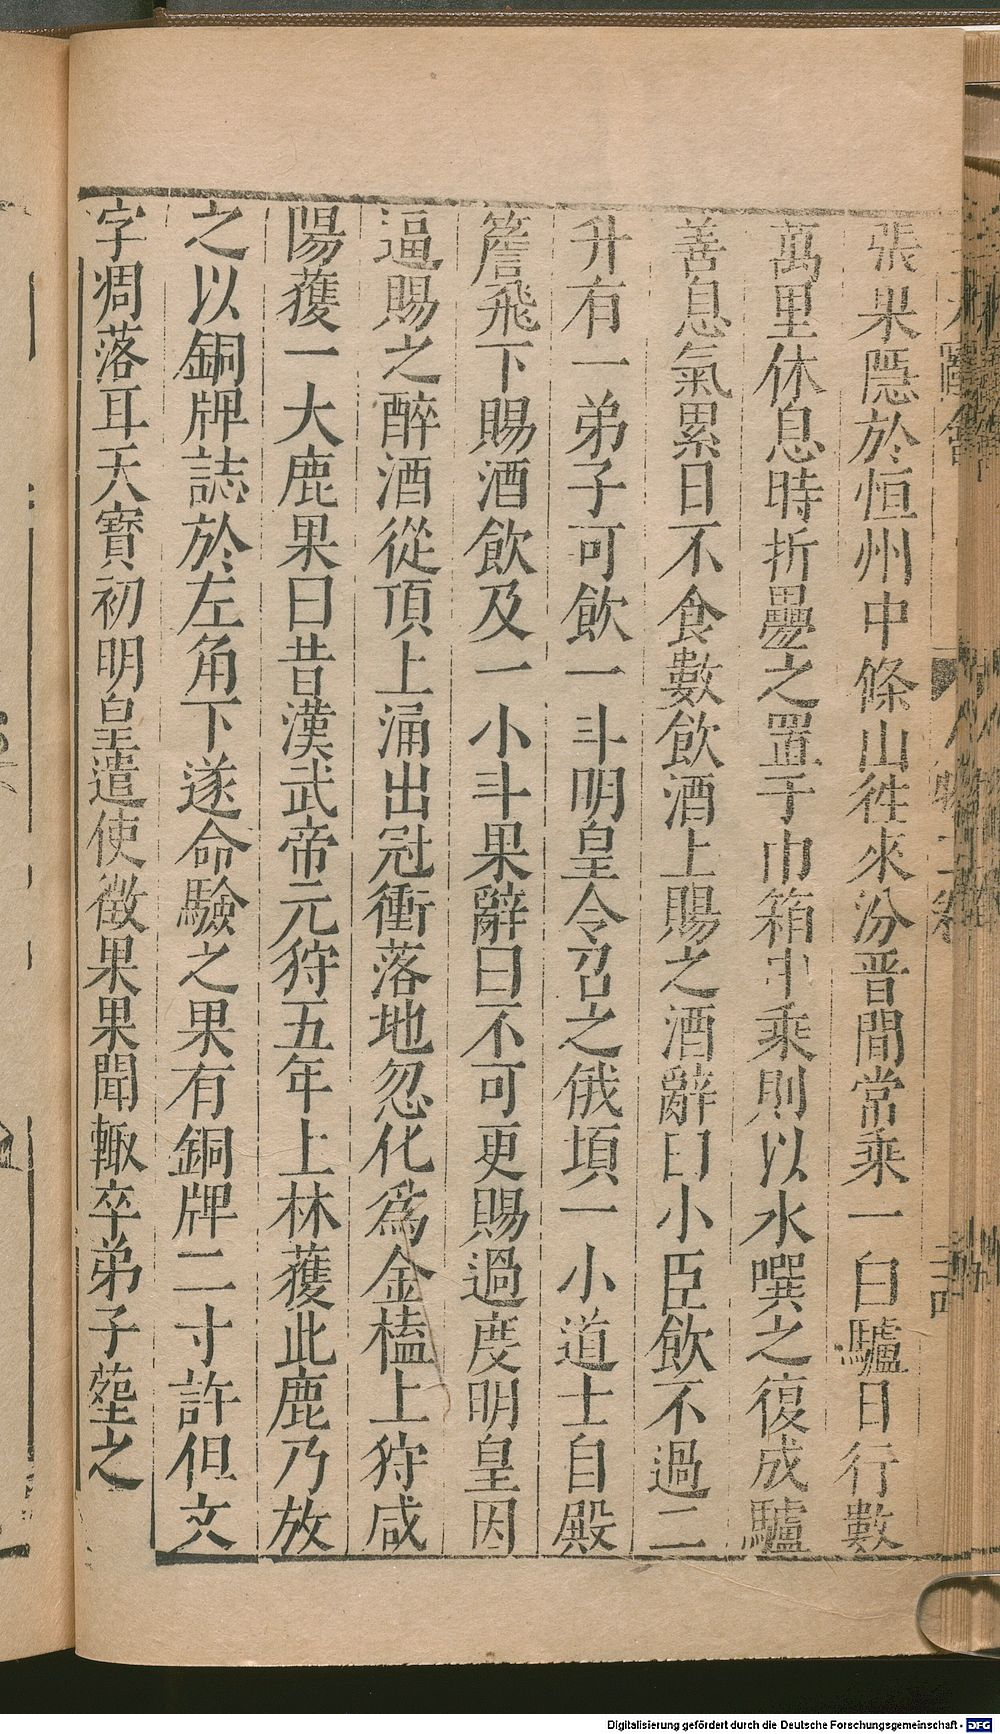 張果隱於恒州中條山徃來汾晋間常乘一白驢日行數
萬里休息時折疊之置于巾箱中乘則以水噀之復成驢
善息氣累日不食數飲酒上賜之酒辭曰小臣飲不過二
升有一弟子可飲一斗明皇令召之俄頃一小道士自殿
簷飛下賜酒飲及一小斗果辭曰不可更賜過度明皇因
逼賜之醉酒從頂上涌出冠衝落地忽化爲金榼上狩咸
陽獲一大鹿果曰昔漢武帝元狩五年上林獲此鹿乃放
之以銅牌誌於左角下遂命驗之果有銅牌二寸許但文
字凋落耳天寶初明皇遣使徵果果聞輙卒弟子塟之
Digitalisierung gefördert durch die Deutsche Forschungsgemeinschaft - DFG